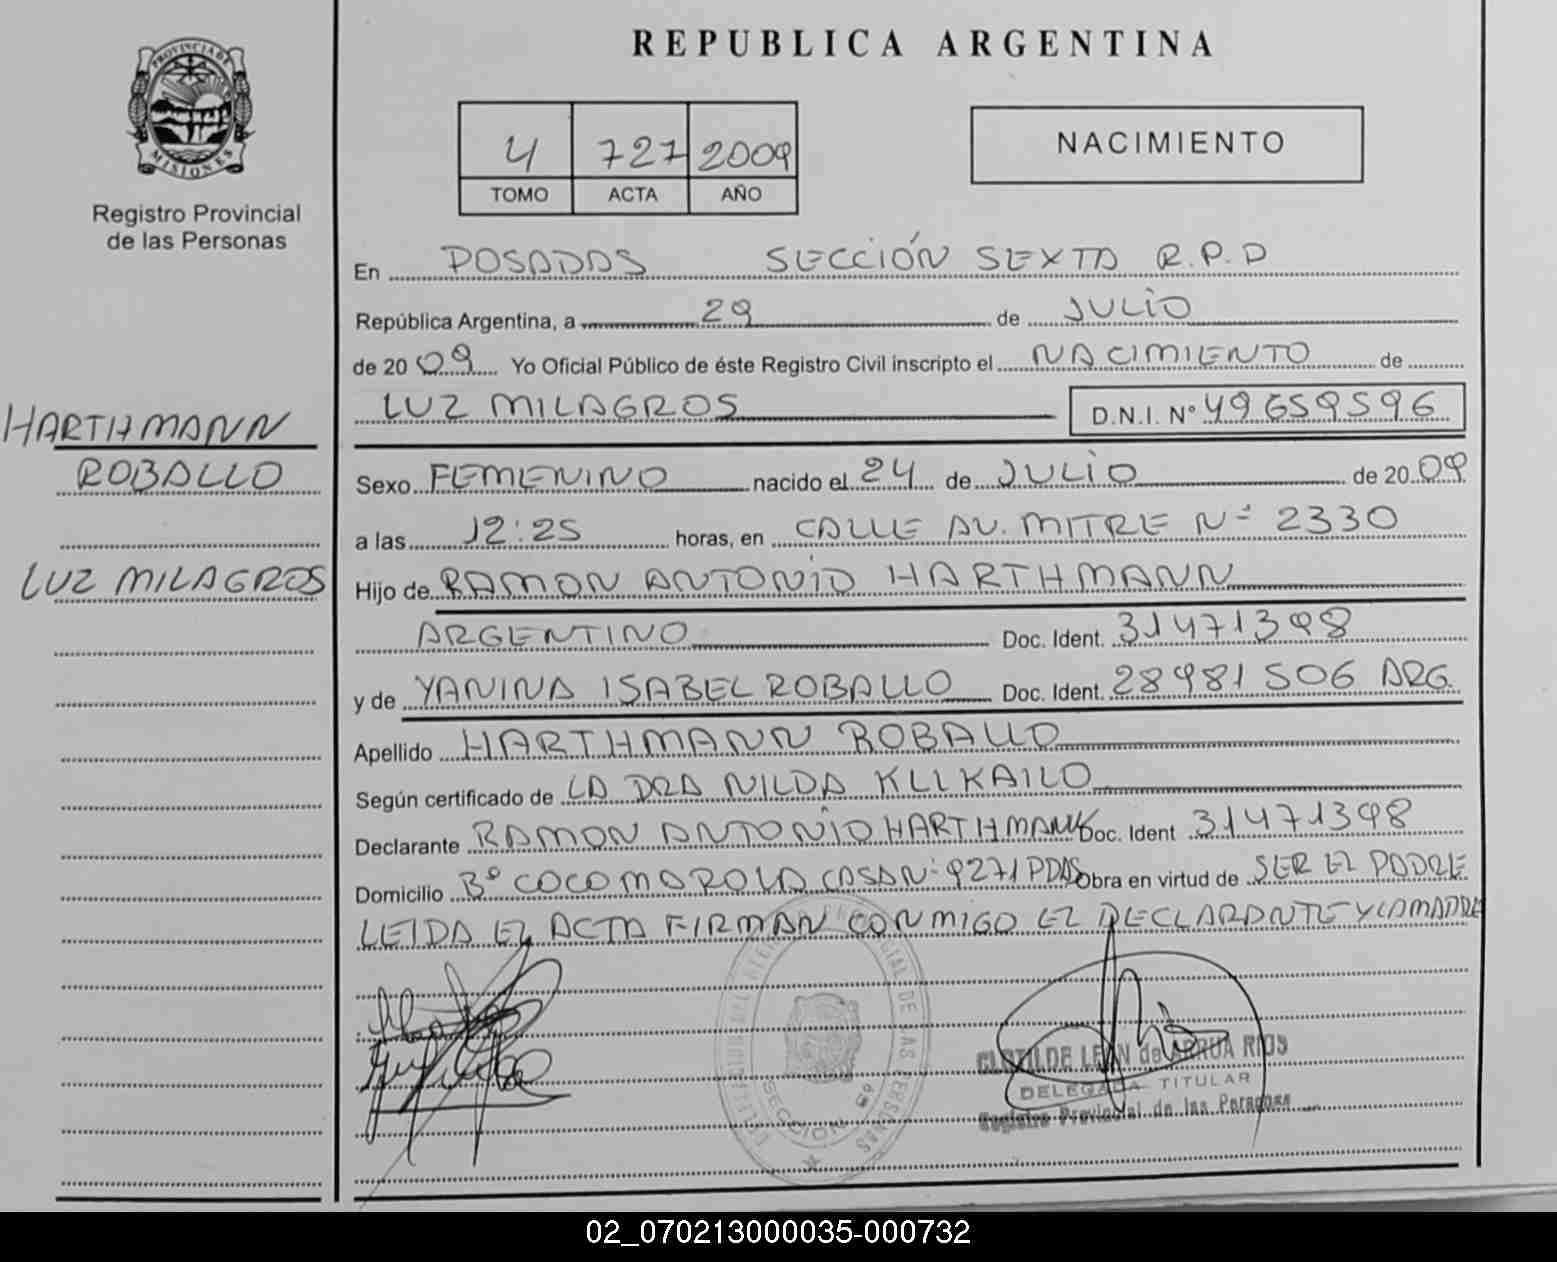 PROVINCIA DE
MISIONES
Registro Provincial
de las Personas
HARTHMANN
ROBALLO
LUZ MILAGROS
REPUBLICA ARGENTINA
4 727 2009
TOMO ACTA AÑO
NACIMIENTO
En POSADAS SECCIÓN SEXTA R.P.D
República Argentina, a 29 de JULIO
de 2009 Yo Oficial Público de éste Registro Civil inscripto el NACIMIENTO de
LUZ MILAGROS D.N.I. Nº 49659596
Sexo FEMENINO nacido el 24 de JULIO de 2009
a las 12:25 horas, en CALLE AV. MITRE Nº 2330
Hijo de RAMON ANTONIO HARTHMANN
ARGENTINO Doc. Ident. 31471398
y de YANINA ISABEL ROBALLO Doc. Ident. 28981506 ARG.
Apellido HARTHMANN ROBALLO
Según certificado de LA DRA NILDA
Declarante RAMON ANTONIO HARTHMANN Doc. Ident 31471398
Domicilio Bº COCOMAROLA CASA Nº 9271 PDAS Obra en virtud de SER EL PADRE
LEIDA EL ACTA FIRMAN CONMIGO EL DECLARANTE Y LA MADRE
SECCION 6ª
CLOTILDE LEON de ARRUA RIOS
DELEGADA TITULAR
Registro Provincial de las Personas
02_070213000035-000732